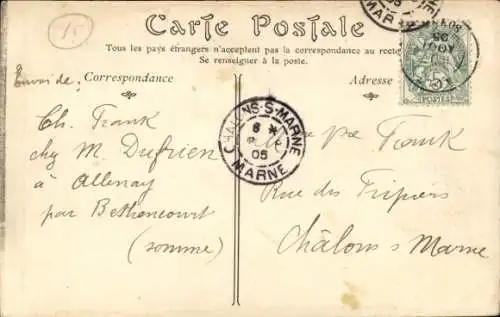 15
Carte Postale
Tous les pays étrangers n'acceptent pas la correspondance au recto
Se renseigner à la poste.
Envoi de :
Correspondance
Ch. Frank
chez M Dufrien
à Allenay
par Bethencourt
(somme)
CHALONS-S-MARNE
6 *
05
MARNE
Adresse
Frank
Rue des Tripiers
Châlons s Marne
AOUT
05
POSTES